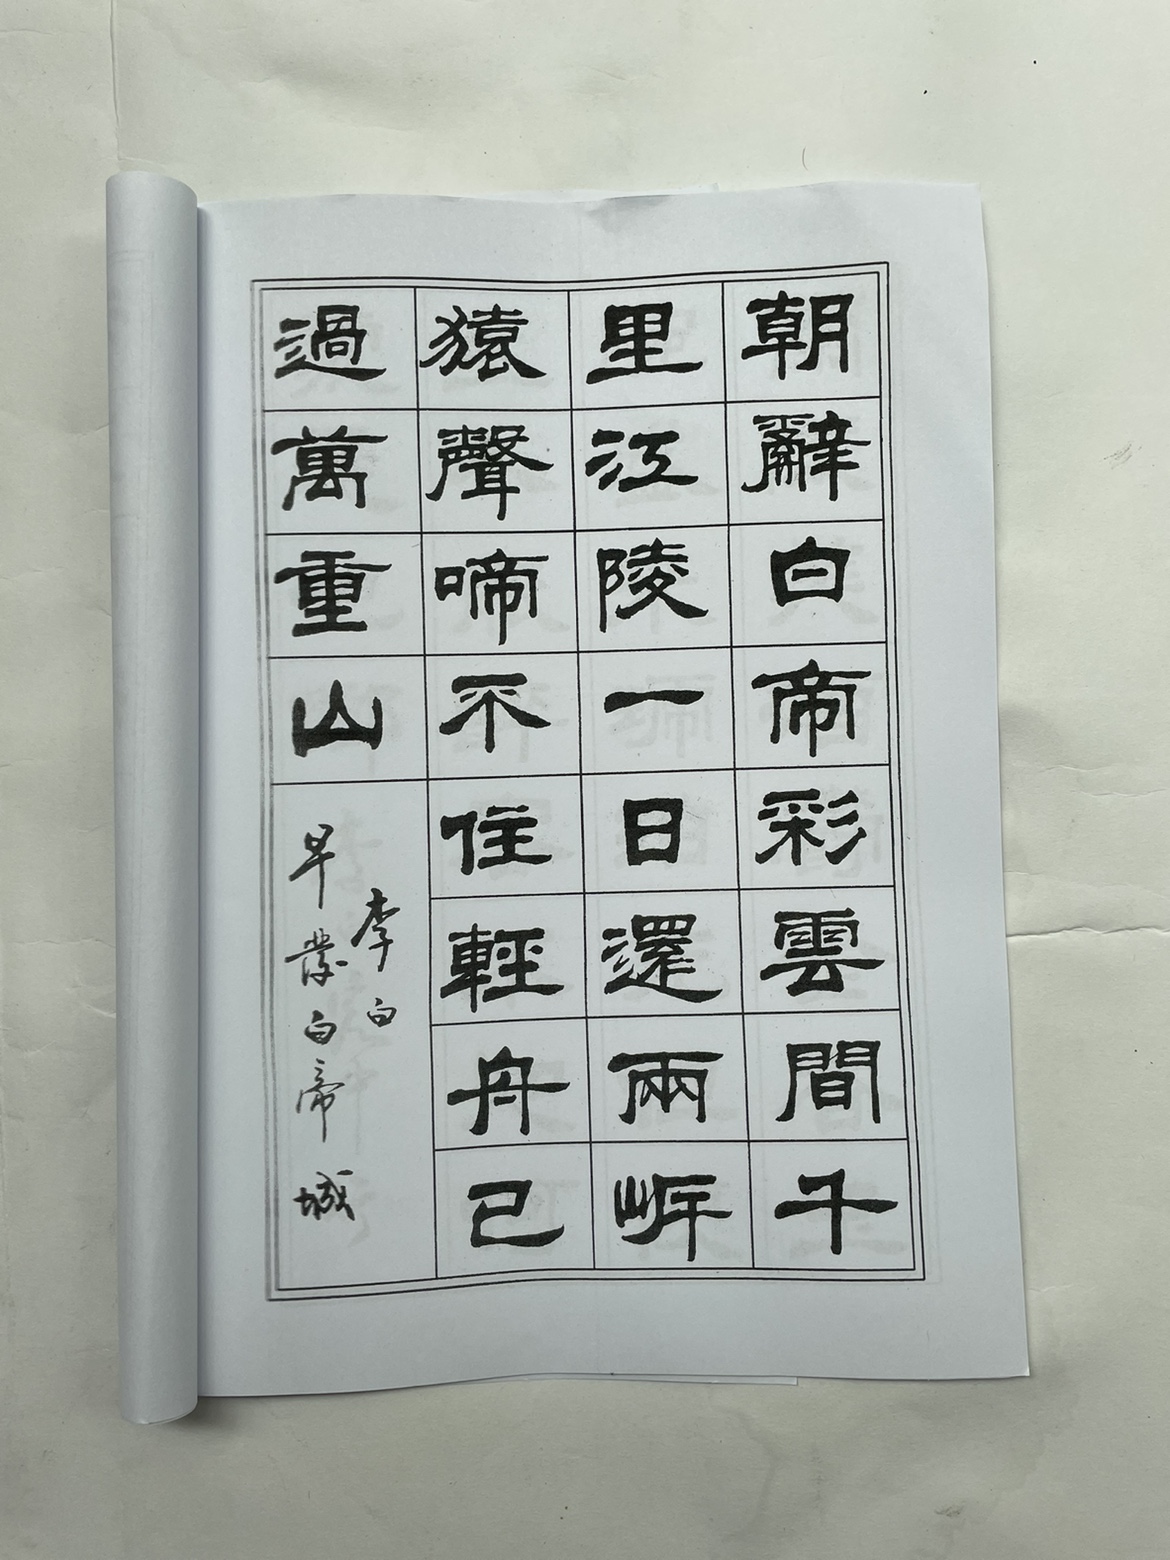 朝辭白帝彩雲間千
里江陵一日還兩岸
猿聲啼不住輕舟已
過萬重山
李白
早發白帝城